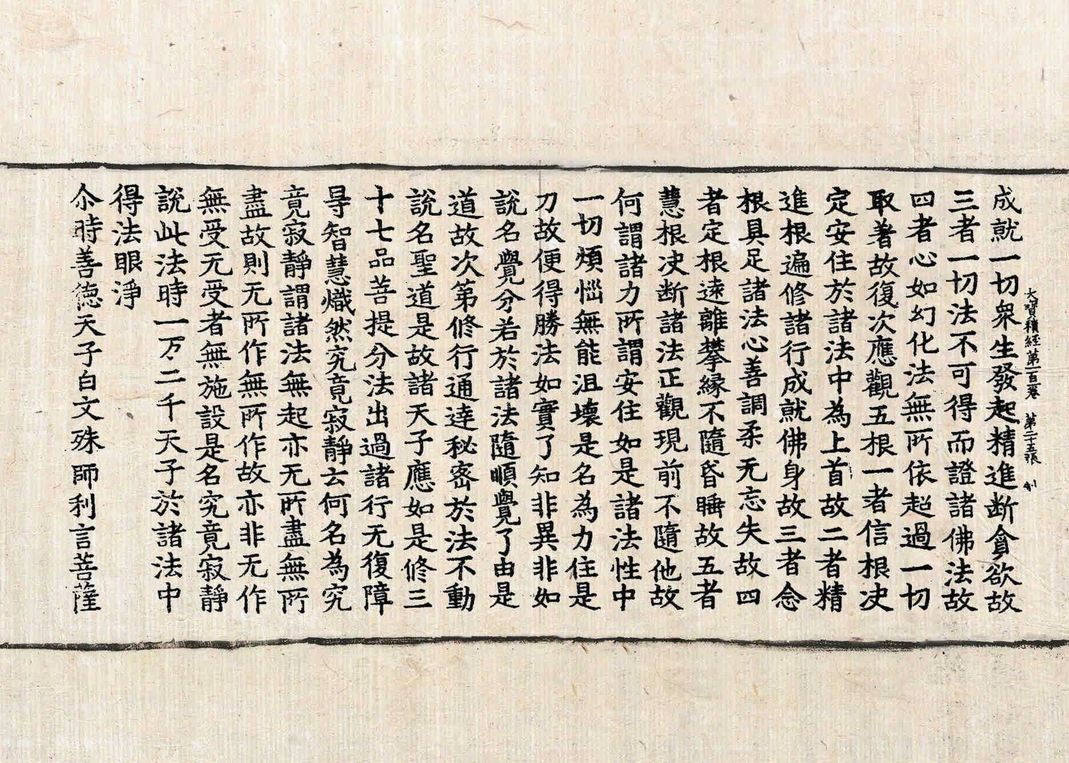 成就一切衆生發起精進断貪欲故
大寶積経第一百卷　第二十五張
三者一切法不可得而證諸佛法故
四者心如幻化法無所依超過一切
取著故復次應觀五根一者信根决
定安住於諸法中為上首故二者精
進根遍修諸行成就佛身故三者念
根具足諸法心善調柔无忘失故四
者定根逺離攀縁不隨昏睡故五者
慧根决断諸法正觀現前不隨他故
何謂諸力所謂安住如是諸法性中
一切煩惱無能沮壞是名為力住是
力故便得勝法如實了知非異非如
說名覺分若於諸法隨順覺了由是
道故次第修行通達秘密於法不動
說名聖道是故諸天子應如是修三
十七品菩提分法出過諸行无復障
㝵智慧熾然究竟寂靜云何名為究
竟寂靜謂諸法無起亦无所盡無所
盡故則无所作無所作故亦非无作
無受无受者無施設是名究竟寂靜
說此法時一万二千天子於諸法中
得法眼淨
尒時善德天子白文殊師利言菩薩